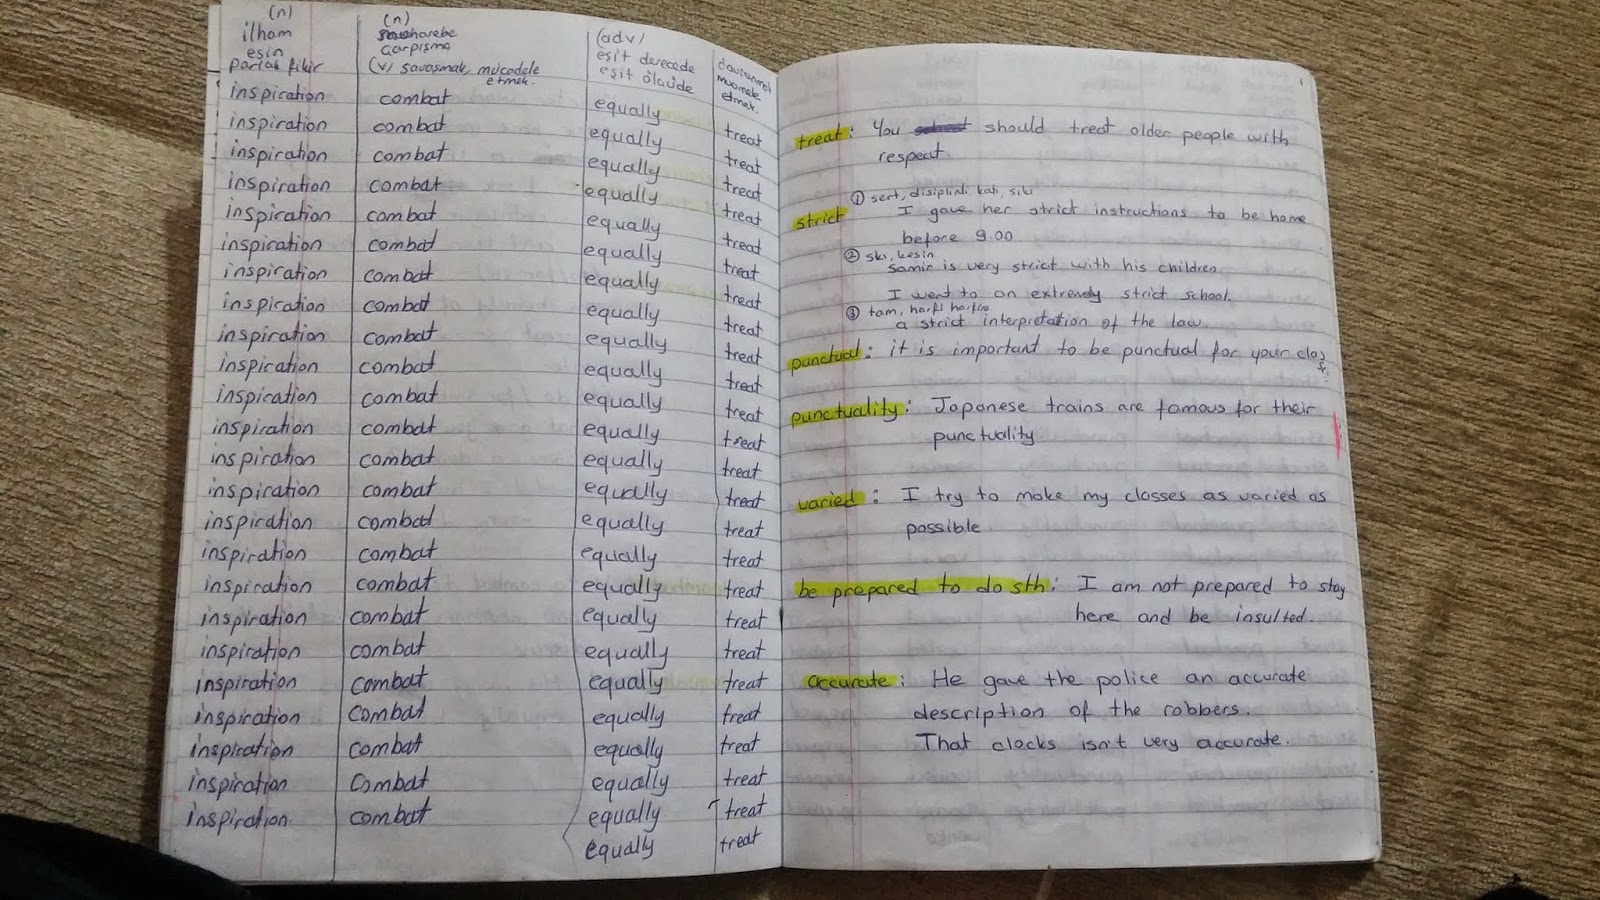 (n)
ilham
esin
parlak fikir
inspiration
inspiration
inspiration
inspiration
inspiration
inspiration
inspiration
inspiration
inspiration
inspiration
inspiration
inspiration
inspiration
inspiration
inspiration
inspiration
inspiration
inspiration
inspiration
inspiration
inspiration
inspiration
inspiration
inspiration
(n)
muharebe
çarpışma
(v) savaşmak, mücadele
etmek.
combat
combat
combat
combat
combat
combat
combat
combat
combat
combat
combat
combat
combat
combat
combat
combat
combat
combat
combat
combat
combat
combat
combat
combat
(adv)
eşit derecede
eşit olarak
equally
equally
equally
equally
equally
equally
equally
equally
equally
equally
equally
equally
equally
equally
equally
equally
equally
equally
equally
equally
equally
equally
equally
equally
equally
davranmak
muamele
etmek.
treat
treat
treat
treat
treat
treat
treat
treat
treat
treat
treat
treat
treat
treat
treat
treat
treat
treat
treat
treat
treat
treat
treat
treat
treat
treat: You should treat older people with
respect.
① sert, disiplinli, katı, sıkı
strict I gave her strict instructions to be home
before 9.00.
② sıkı, kesin
Samir is very strict with his children
I went to an extremely strict school.
③ tam, harfi harfine
a strict interpretation of the law.
punctual: it is important to be punctual for your class
punctuality: Japanese trains are famous for their
punctuality
varied: I try to make my classes as varied as
possible.
be prepared to do sth: I am not prepared to stay
here and be insulted.
accurate: He gave the police an accurate
description of the robbers.
That clocks isn't very accurate.